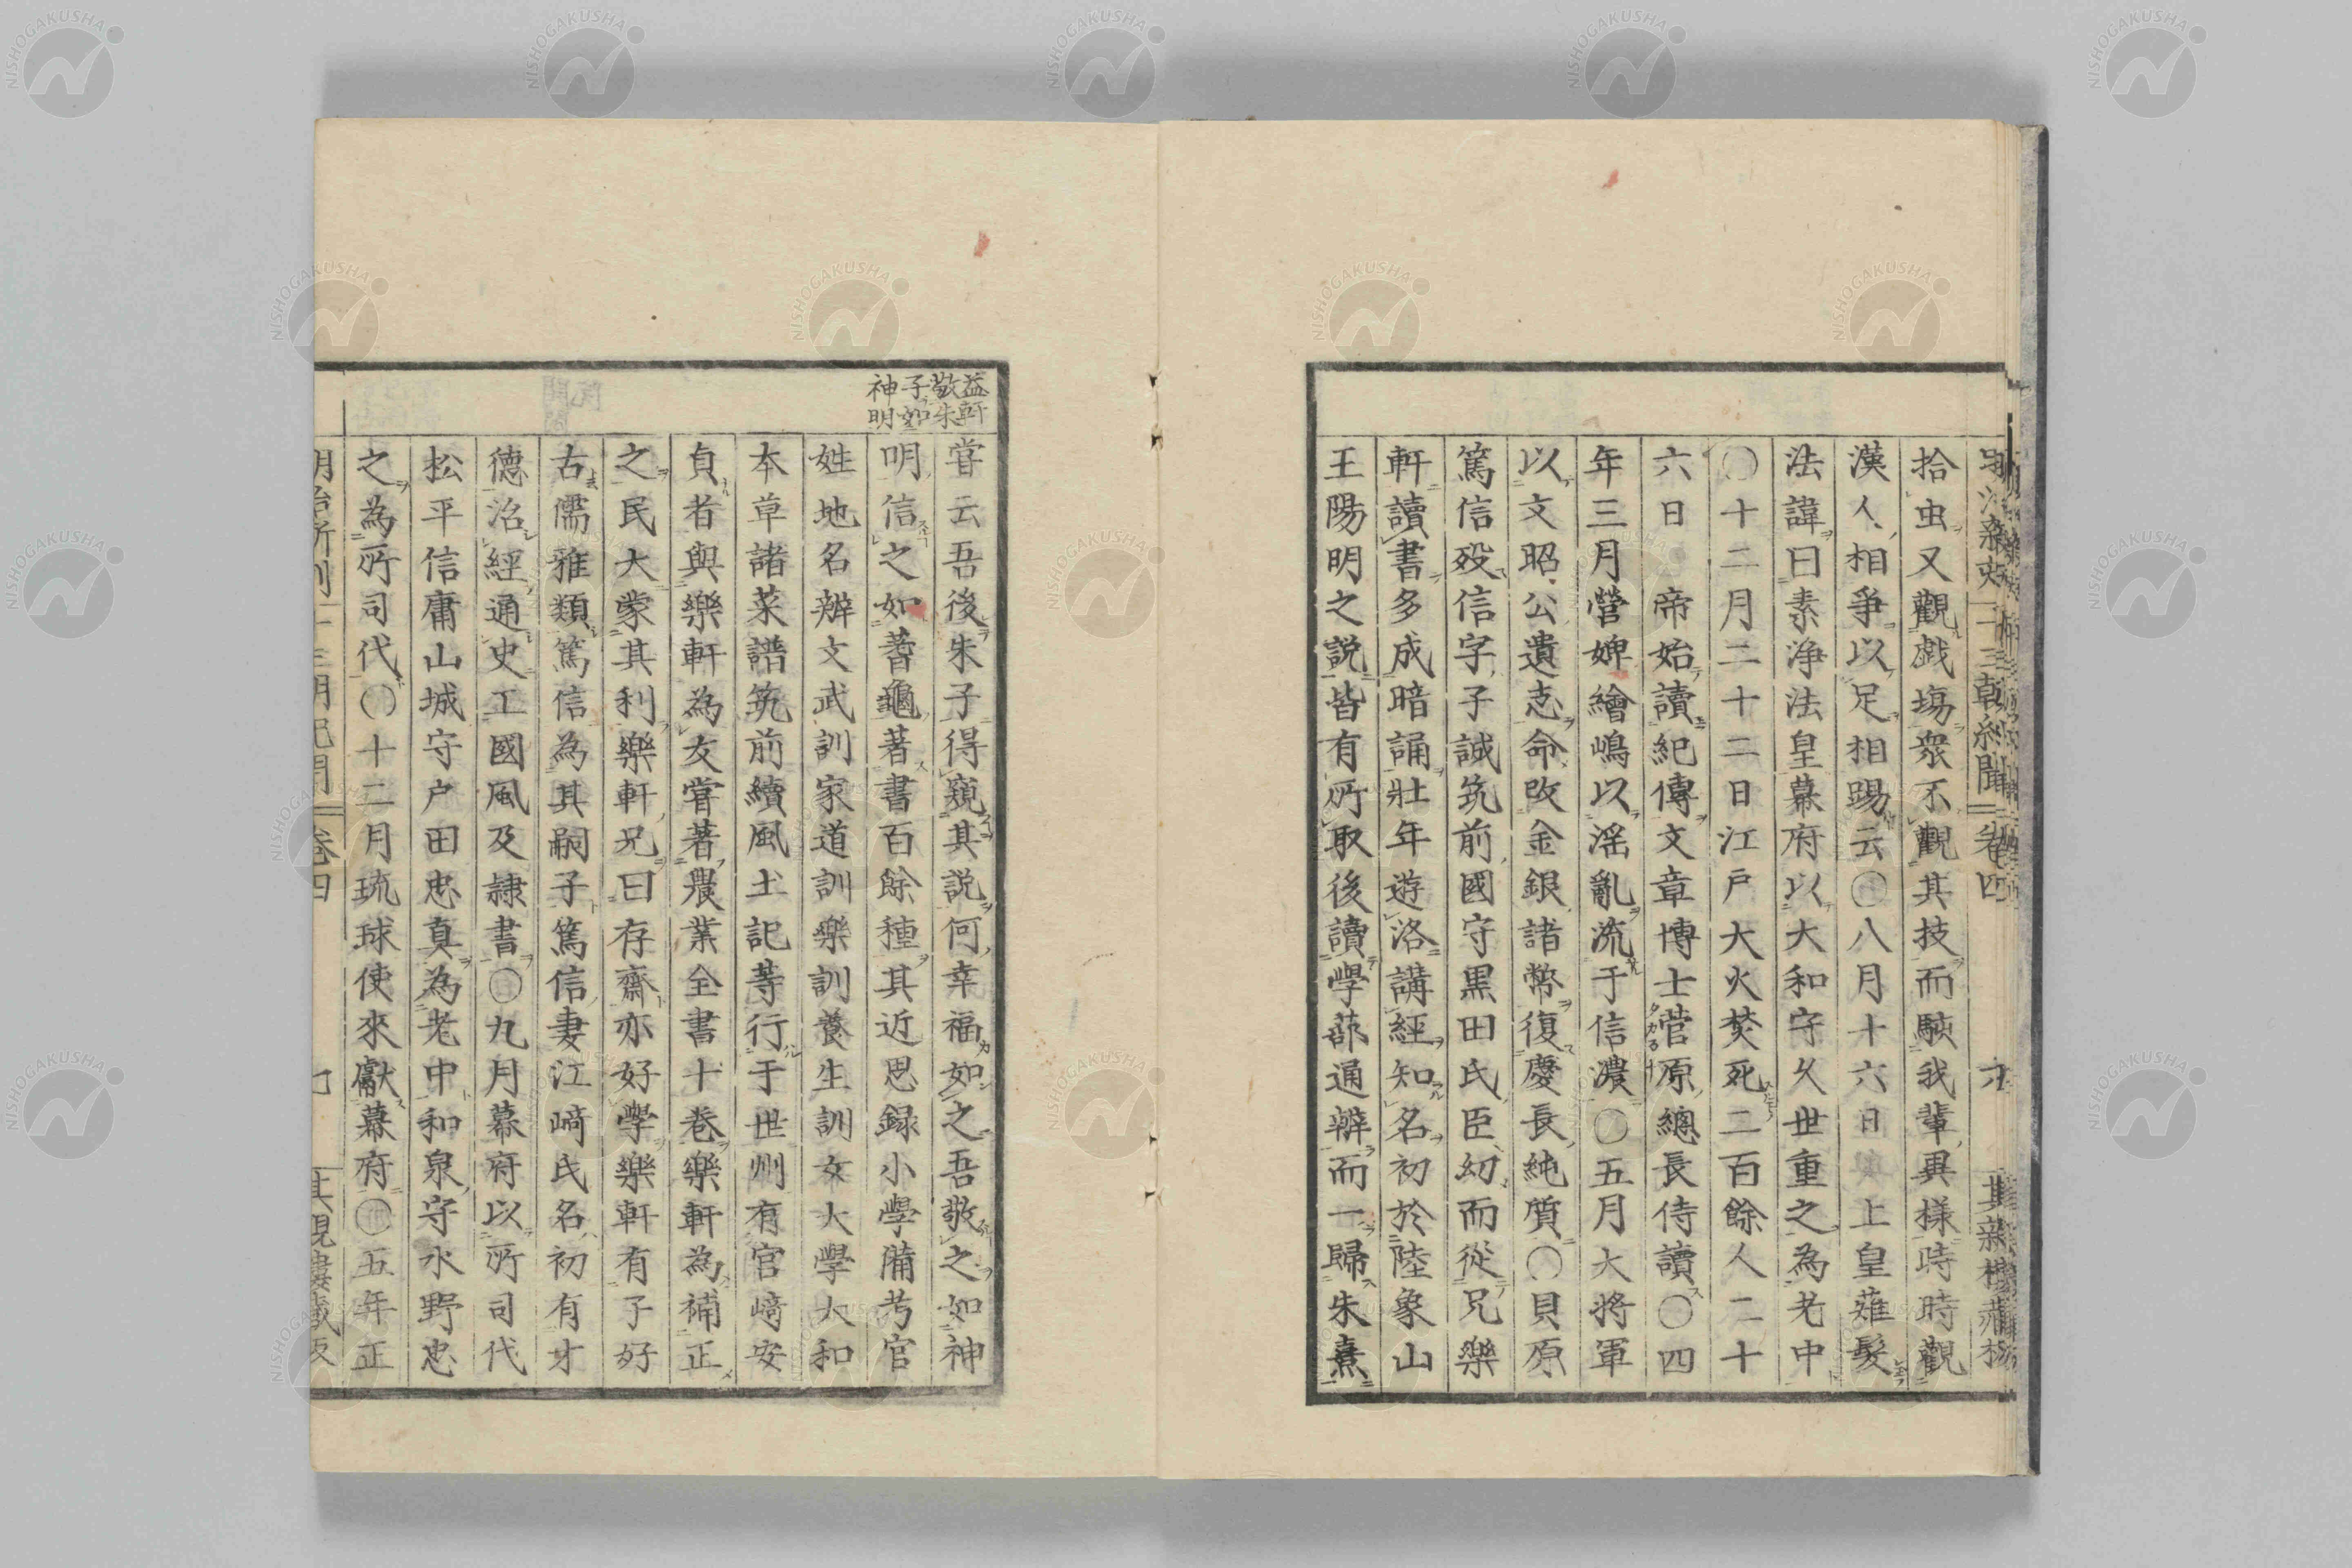 拾虫又觀戲場衆不觀其技而駭我輩異様時時觀
漢人相爭以足相踢云〇八月十六日上皇薙髮
法諱曰素浄法皇幕府以大和守久世重之為老中
〇十二月二十二日江戸大火焚死二百餘人二十
六日帝始讀紀傳文章博士菅原總長侍讀〇四
年三月營婢繪嶋以淫亂流于信濃〇五月大将軍
以文昭公遺志命改金銀諸幣復慶長純質〇貝原
篤信歿信字子誠筑前國守黒田氏臣幼而從兄樂
軒讀書多成暗誦壮年遊洛講經知名初於陸象山
王陽明之説皆有所取後讀學蔀通辨而一歸朱熹
益軒
敬朱
子如
神明
嘗云吾後朱子得窺其説何幸福如之吾敬之如神
明信之如蓍龜著書百餘種其近思録小學備考官
姓地名辨文武訓家道訓樂訓養生訓女大學大和
本草諸菜譜筑前續風土記等行于世州有宮﨑安
貞者與樂軒為友嘗著農業全書十巻樂軒為補正
之民大蒙其利樂軒兄曰存齋亦好學樂軒有子好
古儒雅類篤信為其嗣子篤信妻江﨑氏名初有才
德治經通史工國風及隷書〇九月幕府以所司代
松平信庸山城守户田忠真為老中和泉守水野忠
之為所司代〇十二月琉球使來獻幕府〇五年正